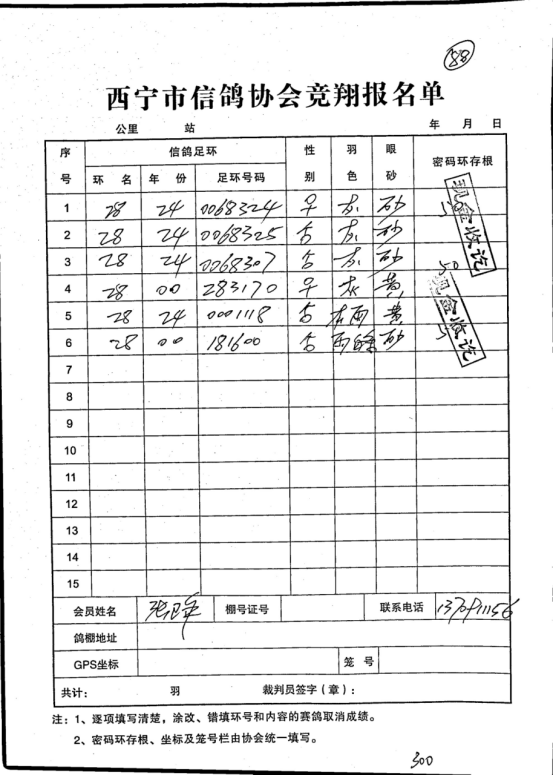 88
西宁市信鸽协会竞翔报名单
公里 站 年 月 日
序号 信鸽足环 性别 羽色 眼砂 密码环存根
环 名 年 份 足环号码
1 28 24 0068324 灰 砂
2 28 24 0068325 灰 砂
3 28 24 0068307 灰 砂
4 28 00 283170 灰 黄
5 28 24 0001118 黄
6 28 00 181600 砂
7
8
9
10
11
12
13
14
15
现金收讫
50
现金收讫
会员姓名 棚号证号 联系电话
鸽棚地址
GPS坐标 笼 号
共计: 羽 裁判员签字(章):
注:1、逐项填写清楚,涂改、错填环号和内容的赛鸽取消成绩。
2、密码环存根、坐标及笼号栏由协会统一填写。
300